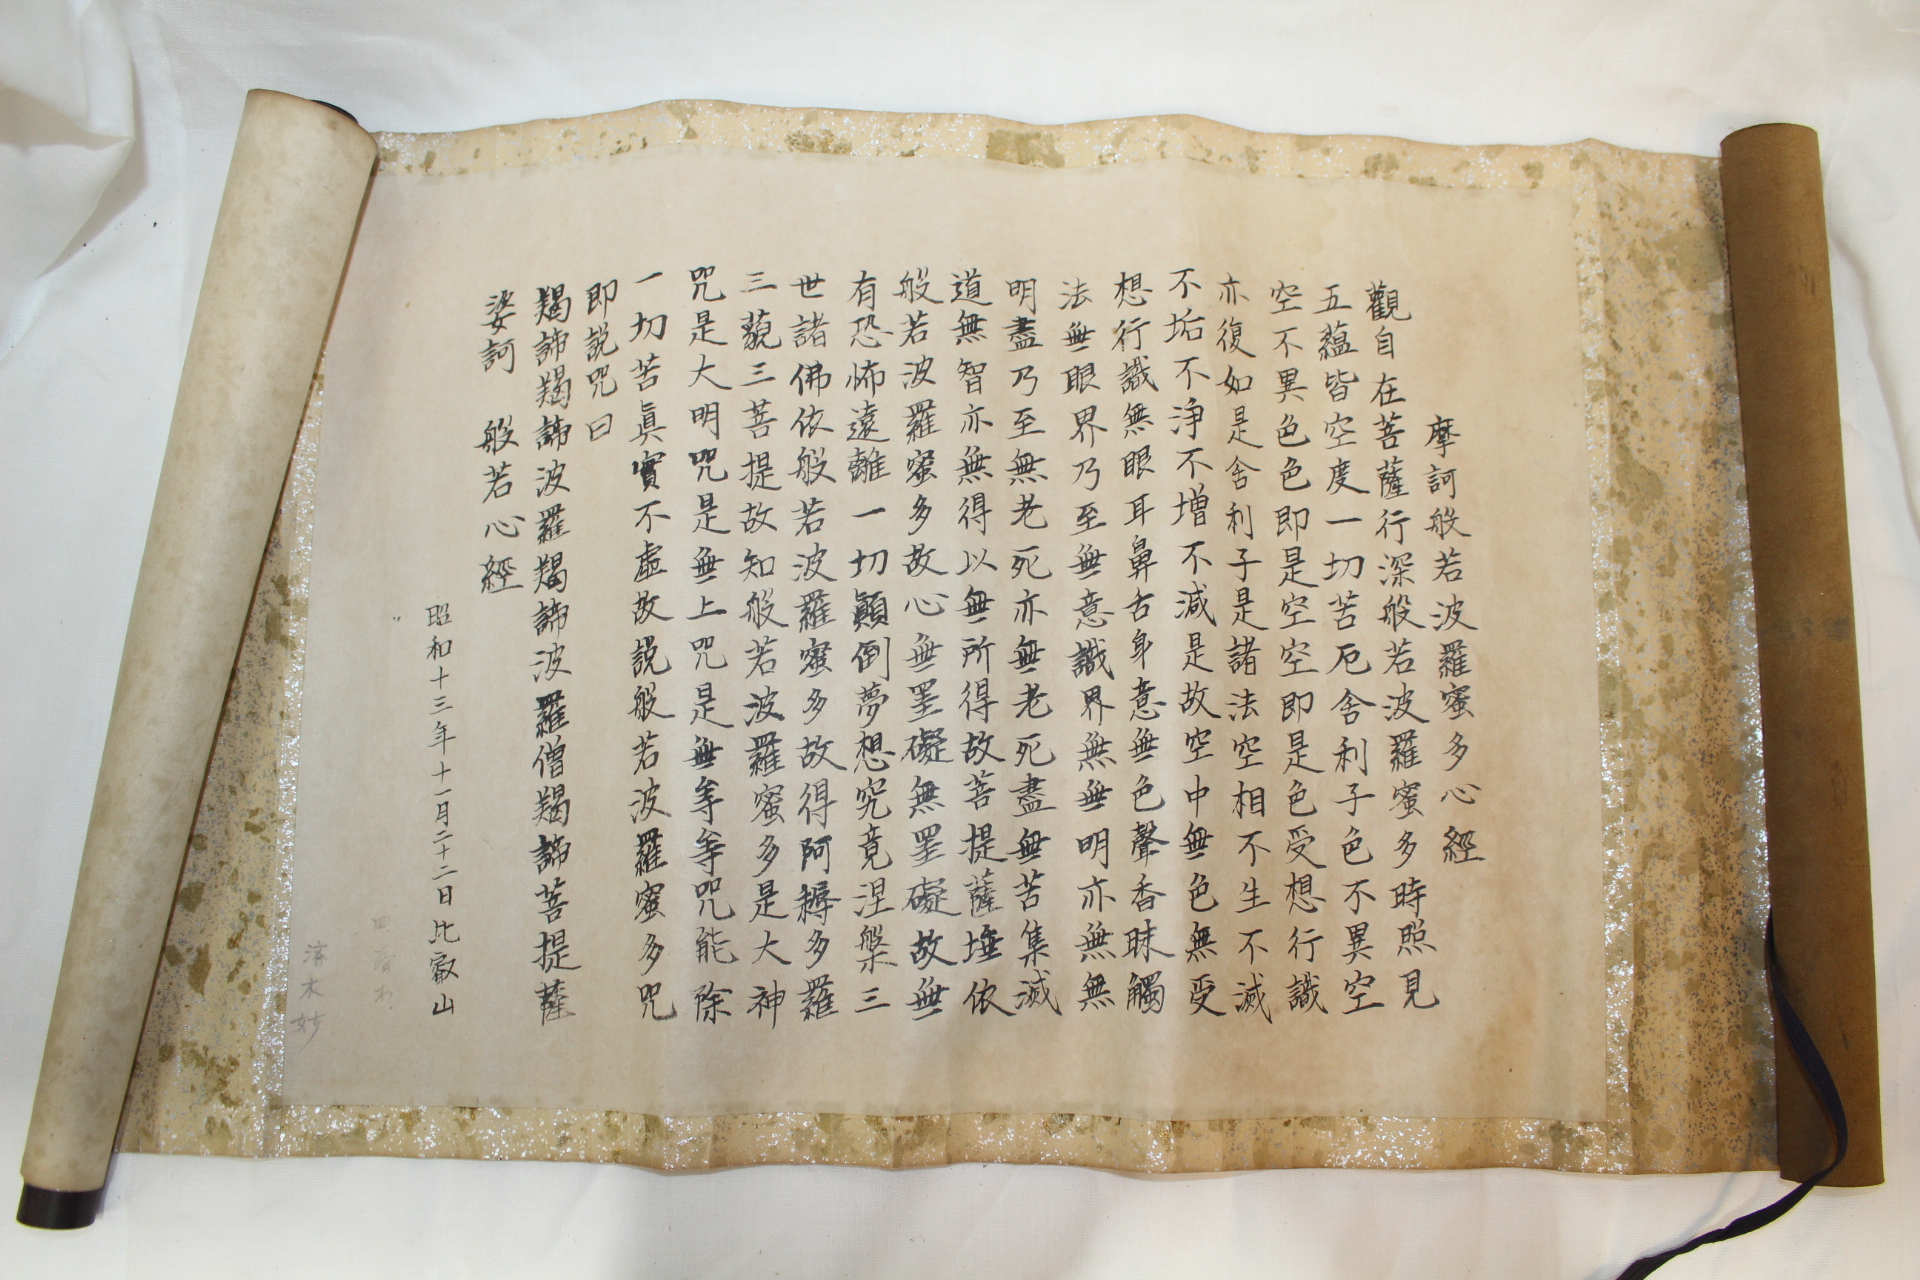 摩訶般若波羅蜜多心經
觀自在菩薩行深般若波羅蜜多時照見
五蘊皆空度一切苦厄舎利子色不異空
空不異色色即是空空即是色受想行識
亦復如是舎利子是諸法空相不生不滅
不垢不浄不增不減是故空中無色無受
想行識無眼耳鼻舌身意無色聲香味觸
法無眼界乃至無意識界無無明亦無無
明盡乃至無老死亦無老死盡無苦集滅
道無智亦無得以無所得故菩提薩埵依
般若波羅蜜多故心無罣礙無罣礙故無
有恐怖遠離一切顚倒夢想究竟涅槃三
世諸佛依般若波羅蜜多故得阿耨多羅
三藐三菩提故知般若波羅蜜多是大神
咒是大明咒是無上咒是無等等咒能除
一切苦眞實不虛故説般若波羅蜜多咒
即説咒曰
羯諦羯諦波羅羯諦波羅僧羯諦菩提薩
婆訶 般若心經
昭和十三年十一月二十二日比叡山